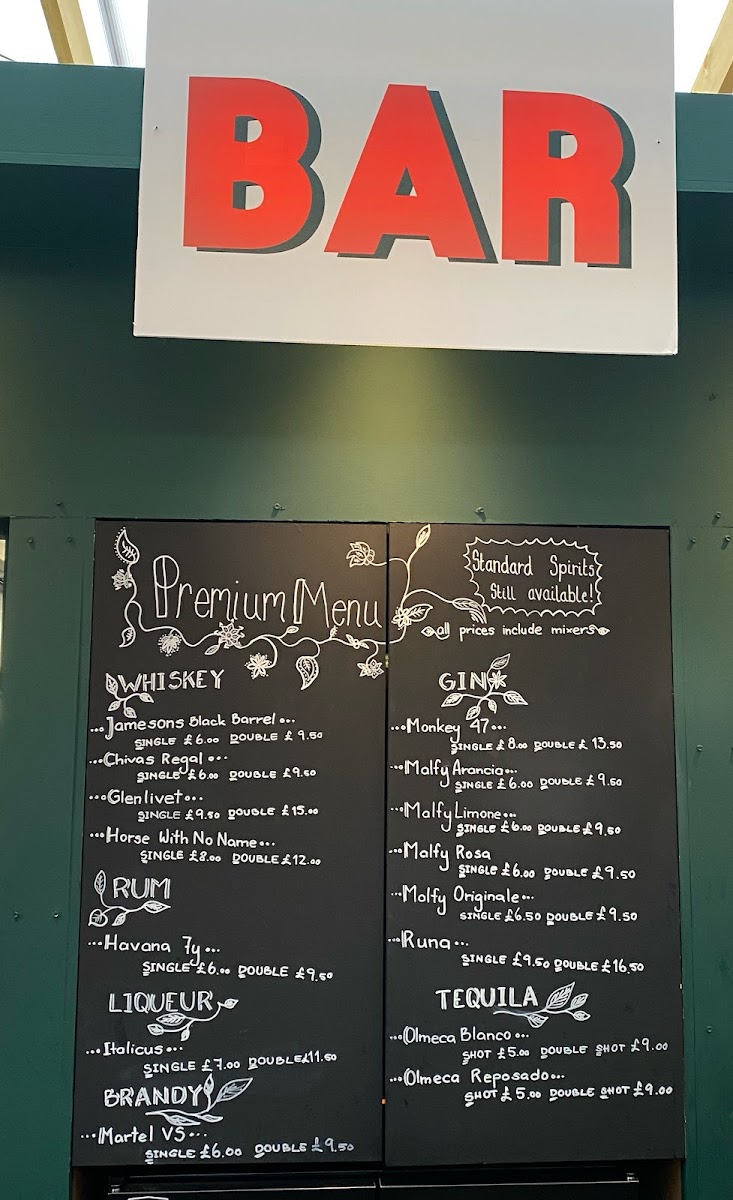 BAR
Premium Menu
WHISKEY
...Jamesons Black Barrel...
SINGLE £6.00 DOUBLE £9.50
...Chivas Regal...
SINGLE £6.00 DOUBLE £9.50
...Glenlivet...
SINGLE £9.50 DOUBLE £15.00
...Horse With No Name...
SINGLE £8.00 DOUBLE £12.00
RUM
...Havana 7y...
SINGLE £6.00 DOUBLE £9.50
LIQUEUR
...Italicus...
SINGLE £7.00 DOUBLE £11.50
BRANDY
...Martel VS...
SINGLE £6.00 DOUBLE £9.50
Standard Spirits
Still available!
all prices include mixers
GIN
...Monkey 47...
SINGLE £8.00 DOUBLE £13.50
...Malfy Arancia...
SINGLE £6.00 DOUBLE £9.50
...Malfy Limone...
SINGLE £6.00 DOUBLE £9.50
...Malfy Rosa
SINGLE £6.00 DOUBLE £9.50
...Malfy Originale...
SINGLE £6.50 DOUBLE £9.50
...Runa...
SINGLE £9.50 DOUBLE £16.50
TEQUILA
...Olmeca Blanco...
SHOT £5.00 DOUBLE SHOT £9.00
...Olmeca Reposado...
SHOT £5.00 DOUBLE SHOT £9.00